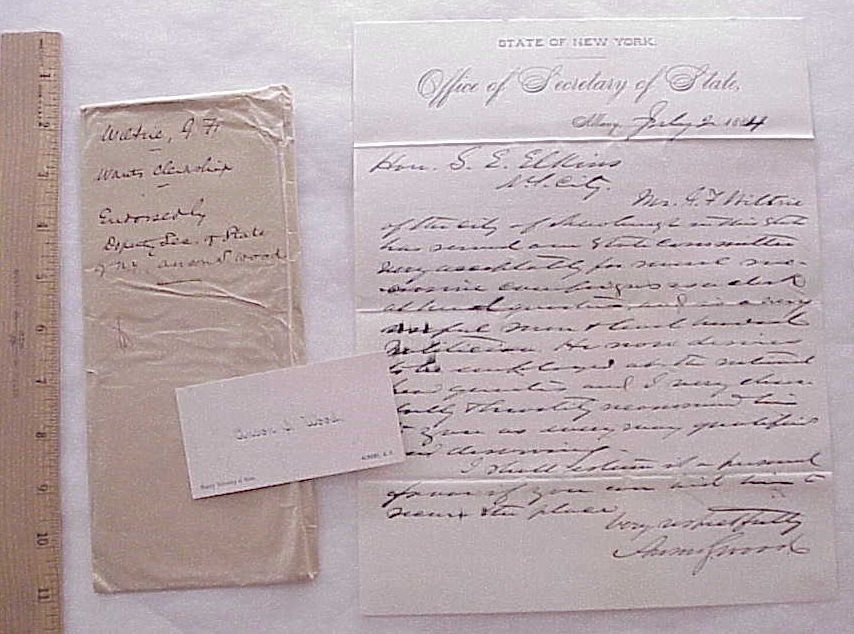 Wiltsie, G F.
Wants clerkship
Endorsed by
Deputy Sec. of State
of N.Y. Anson S Wood
Anson S. Wood.
Deputy Secretary of State.
ALBANY, N. Y.
STATE OF NEW YORK.
Office of Secretary of State,
Albany, July 2 1884
Hon. S. E. Elkins
N.Y. City.
Mr. G. F. Wiltsie
of the city of Newburgh in this State
has served our State Committee
very acceptably for several
campaigns as a clerk
at head quarters and is a very
useful man &
politician. He now desires
to be employed at the national
head quarters and I very cheer-
fully & heartily recommend him
to you as every way qualified
and deserving.
I shall esteem it a personal
favor if you can aid him to
secure the place.
Very respectfully
Anson S Wood